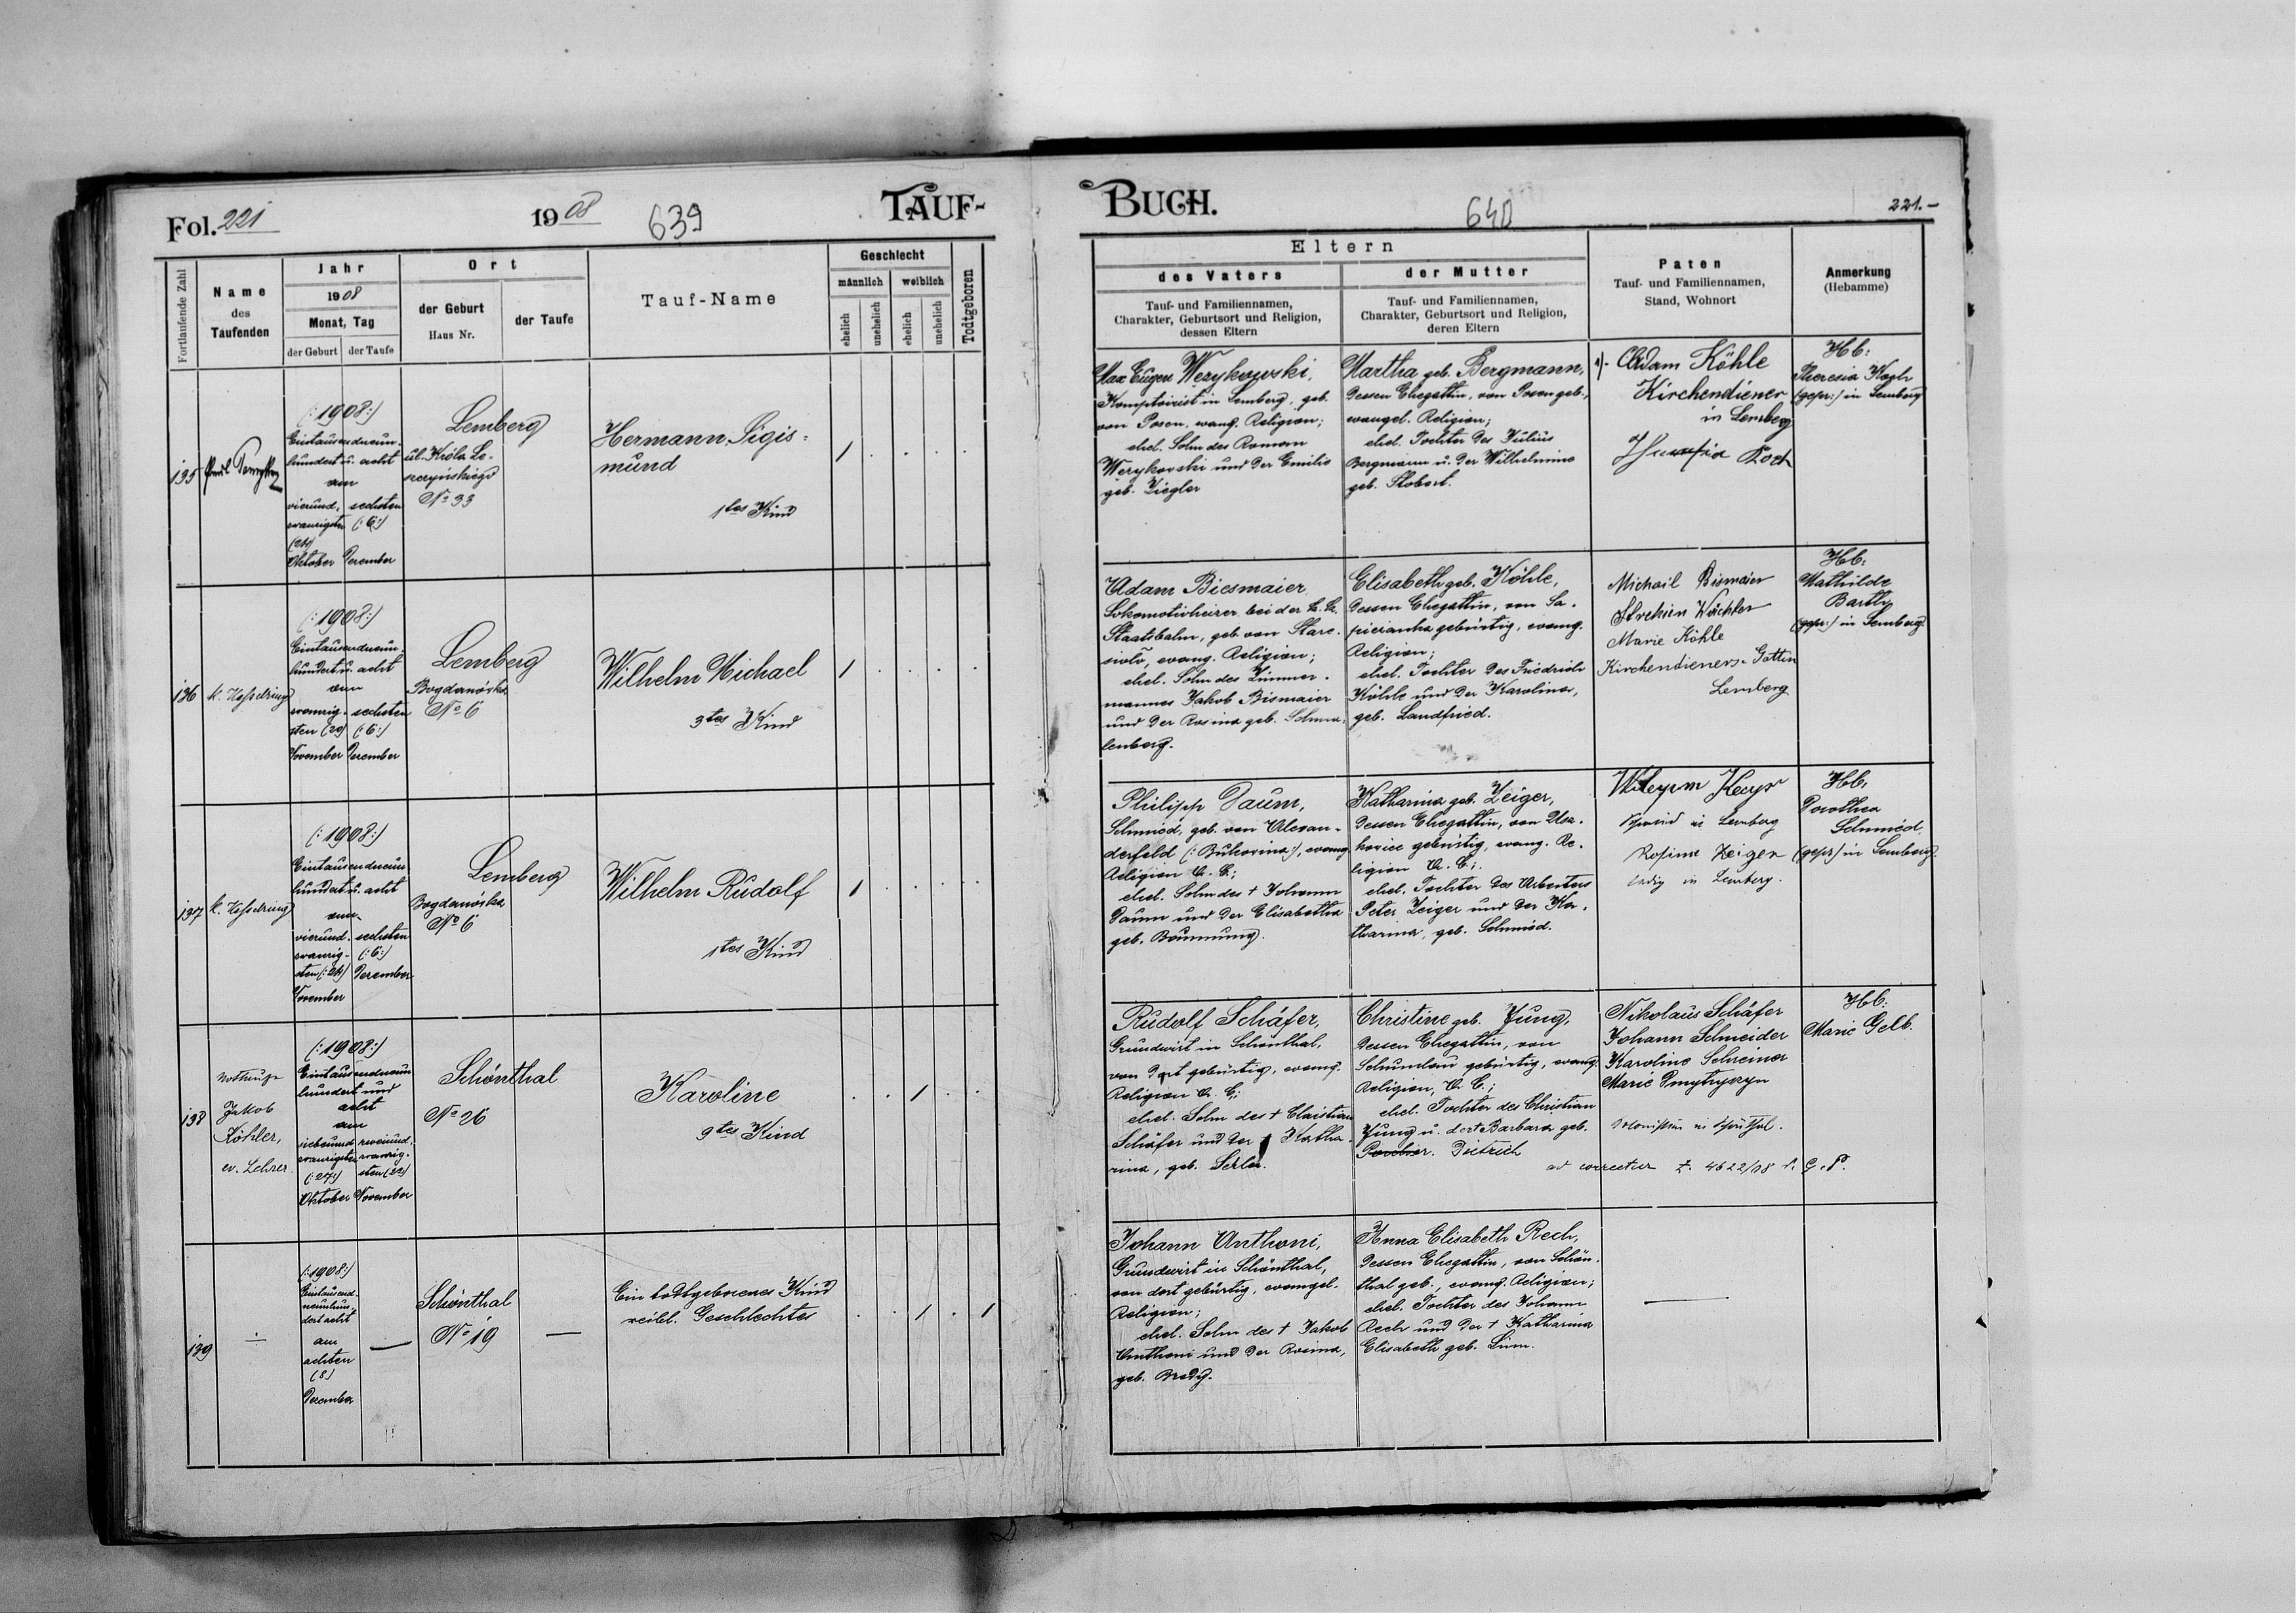 Fol. 221
1908
639
TAUF-
Fortlaufende Zahl
Name
des
Taufenden
Jahr
1908
Monat, Tag
der Geburt
der Taufe
Ort
der Geburt
Haus Nr.
der Taufe
Tauf-Name
Geschlecht
männlich
weiblich
ehelich
unehelich
ehelich
unehelich
Todtgeboren
135
Paul
(:1908:)
Eintausendneun-
hundert u. acht
am
vierund- sechsten
zwanzigsten (:6:)
(24)
Oktober Dezember
Lemberg
ul. Króla Le-
szczyńskiego
No 33
Hermann Sigis-
mund
1tes Kind
136
K. Hesselring
(:1908:)
Eintausendneun-
hundert u. acht
am
zwanzig- sechsten
sten (20) (:6:)
November Dezember
Lemberg
Bogdanówka
No 6
Wilhelm Michael
3tes Kind
137
K. Hesselring
(:1908:)
Eintausendneun
hundert u. acht
am
vierund- sechsten
zwanzig- (:6:)
sten (:24) Dezember
November
Lemberg
Bogdanówka
No 6
Wilhelm Rudolf
1tes Kind
138
Nottaufe
Jakob
Köhler,
ev. Lehrer.
(:1908:)
Eintausendneun
hundert und
acht
am
siebenund- zweiund-
zwanzigsten zwanzig-
(:27:) sten (22)
Oktober November
Schönthal
No 26
Karoline
9tes Kind
139
(:1908:)
Eintausend-
neunhun-
dert acht
am
achten
(8)
Dezember
Schönthal
No 19
Ein todtgeborenes Kind
weibl. Geschlechtes
BUCH.
640
221.-
Eltern
des Vaters
Tauf- und Familiennamen,
Charakter, Geburtsort und Religion,
dessen Eltern
der Mutter
Tauf- und Familiennamen,
Charakter, Geburtsort und Religion,
deren Eltern
Paten
Tauf- und Familiennamen,
Stand, Wohnort
Anmerkung
(Hebamme)
Max Eugen Wezykowski,
Komptoirist in Lemberg, geb.
von Posen, evang. Religion;
ehel. Sohn des Roman
Wezykowski und der Emilie
geb. Ziegler
Martha geb. Bergmann,
dessen Ehegattin, von Posen geb.,
evangel. Religion;
ehel. Tochter des Julius
Bergmann u. der Wilhelmine
geb. Skobert.
Adam Köhle
Kirchendiener
in Lemberg
Koch
Hb:
Theresia
(gepr:) in Lemberg
Adam Biesmaier
Lokomotivheizer bei der k. k.
Staatsbahn, geb. von Stare-
sioło, evang. Religion;
ehel. Sohn des Zimmer-
mannes Jakob Bismaier
und der Rosina geb. Schma-
lenberg.
Elisabeth geb. Köhle,
dessen Ehegattin, von Sa-
pieżanka gebürtig, evang.
Religion;
ehel. Tochter des Friedrich
Köhle und der Karolina,
geb. Landfried.
Michail Bismaier
Wächter
Marie Köhle
Kirchendieners-Gattin
Lemberg
Hb:
Mathilde
Bartly
(gepr:) in Lemberg
Philipp Daum,
Schmied, geb. von Alexan-
derfeld (:Bukovina:), evang.
Religion A. C.;
ehel. Sohn des † Johann
Daum und der Elisabetha
geb.
Katharina geb. Zeiger,
dessen Ehegattin, von
gebürtig, evang. Re-
ligion A. C.;
ehel. Tochter des Arbeiters
Peter Zeiger und der Ka-
tharina, geb. Schmied.
Schmied in Lemberg
Rosina Zeiger
ledig in Lemberg.
Hb,
Dorothea
Schmied,
(gepr) in Lemberg
Rudolf Schäfer,
Grundwirt in Schönthal,
von dort gebürtig, evang.
Religion A. C.;
ehel. Sohn des † Christian
Schäfer und der † Katha-
rina, geb.
Christine geb. Jung,
dessen Ehegattin, von
Schumlau gebürtig, evang.
Religion, A. C.;
ehel. Tochter des Christian
Jung u. der † Barbara geb.
Dietrich
Nikolaus Schäfer
Johann Schneider
Karoline Schreiner
Marie Dmytryszyn
Kolonisten in Schönthal.
ad correctur Z. 4622/08
Hb:
Marie Gelb.
Johann Anthoni,
Grundwirt in Schönthal,
von dort gebürtig, evangel.
Religion;
ehel. Sohn des † Jakob
Anthoni und der Rosina,
geb. Bredy.
Anna Elisabeth Rech,
dessen Ehegattin, von Schön-
thal geb., evang. Religion;
ehel. Tochter des Johann
Rech und der † Katharina
Elisabeth geb. Linn.